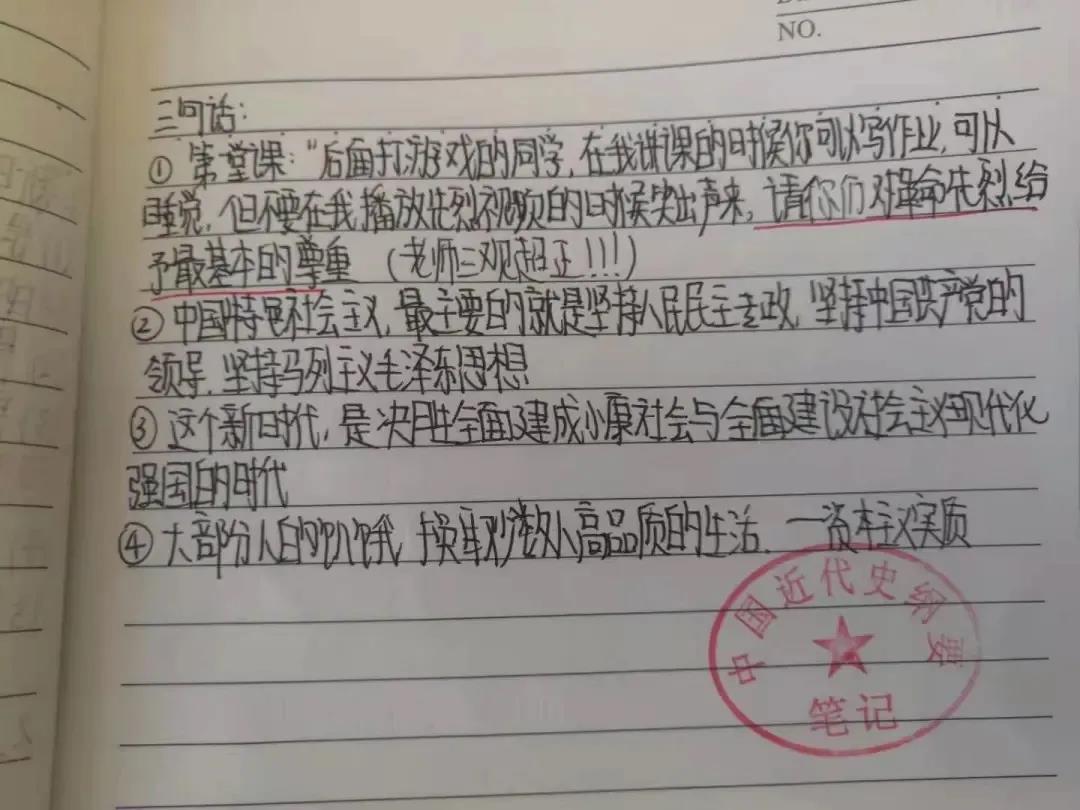 NO.
三句话:
① 第堂课:"后面打游戏的同学,在我讲课的时候你可以写作业,可以
睡觉,但不要在我播放先烈视频的时候笑出声来,请你们对革命先烈给
予最基本的尊重 (老师三观超正!!!)
② 中国特色社会主义,最主要的就是坚持人民民主专政,坚持中国共产党的
领导,坚持马列主义毛泽东思想
③ 这个新时代,是决胜全面建成小康社会与全面建设社会主义现代化
强国的时代
④ 大部分人的饥饿,换取少数人高品质的生活. 一资本主义实质
中国近代史纲要
笔记